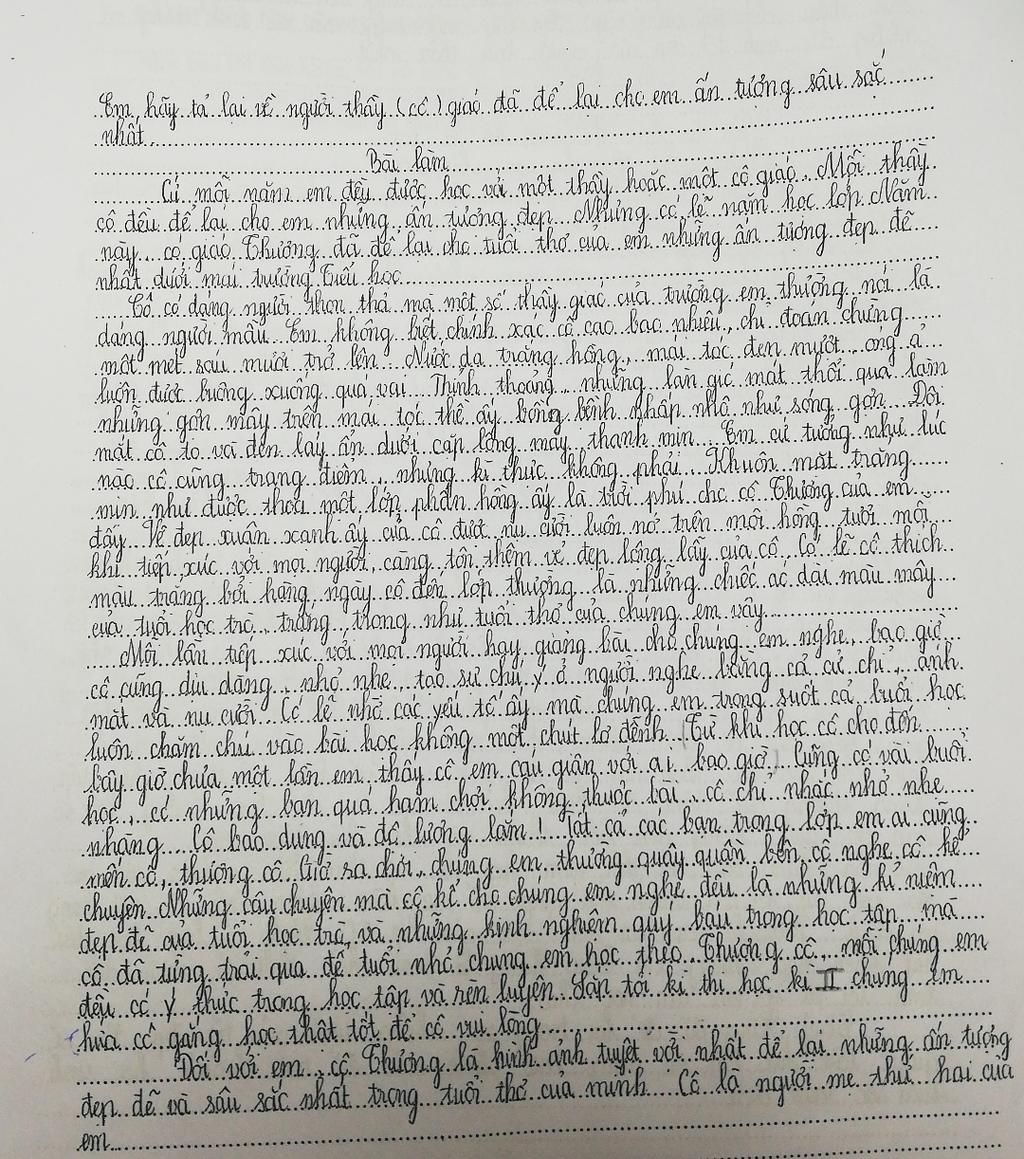 Em hãy tả lại về người thầy (cô) giáo đã để lại cho em ấn tượng sâu sắc
nhất.
Bài làm
Cứ mỗi năm em đều được học với một thầy hoặc một cô giáo. Mỗi thầy
cô đều để lại cho em những ấn tượng đẹp. Nhưng có lẽ năm học lớp Năm
này, cô giáo Thương đã để lại cho tuổi thơ của em những ấn tượng đẹp đẽ
nhất dưới mái trường Tiểu học.
Cô có dáng người thon thả mà một số thầy giáo của trường em thường nói là
dáng người mẫu. Em không biết chính xác cô cao bao nhiêu, chỉ đoan chừng
một mét sáu mươi trở lên. Nước da trắng hồng, mái tóc đen mượt, óng ả
luôn được buông xuống quá vai. Thỉnh thoảng, những làn gió mát thổi qua làm
những gợn mây trên mái tóc thề ấy bồng bềnh nhấp nhô như sóng gợn. Đôi
mắt cô to và đen láy ẩn dưới cặp lông mày thanh mịn. Em cứ tưởng như lúc
nào cô cũng trang điểm, nhưng kì thực không phải. Khuôn mặt trắng
mịn như được thoa một lớp phấn hồng ấy là trời phú cho cô Thương của em
đấy. Vẻ đẹp xuân xanh ấy của cô được nụ cười luôn nở trên môi hồng tươi mỗi
khi tiếp xúc với mọi người, càng tôn thêm vẻ đẹp lộng lẫy của cô. Có lẽ cô thích
màu trắng bởi hàng ngày cô đến lớp thường là những chiếc áo dài màu mây
của tuổi học trò, trắng trong như tuổi thơ của chúng em vậy.
Mỗi lần tiếp xúc với mọi người hay giảng bài cho chúng em nghe, bao giờ
cô cũng dịu dàng, nhỏ nhẹ, tạo sự chú ý ở người nghe bằng cả cử chỉ, ánh
mắt và nụ cười. Có lẽ nhờ các yếu tố ấy mà chúng em trong suốt cả buổi học
luôn chăm chú vào bài học không một chút lơ đễnh. (Từ khi học cô cho đến
bây giờ chưa một lần em thấy cô em cáu giận với ai bao giờ.) Cũng có vài buổi
học, có những bạn quá ham chơi không thuộc bài, cô chỉ nhắc nhở nhẹ
nhàng. Cô bao dung và độ lượng lắm! Tất cả các bạn trong lớp em ai cũng
mến cô, thương cô. Giờ ra chơi, chúng em thường quây quần bên cô nghe cô kể
chuyện. Những câu chuyện mà cô kể cho chúng em nghe đều là những kỉ niệm
đẹp đẽ của tuổi học trò, và những kinh nghiệm quý báu trong học tập mà
cô đã từng trải qua để tuổi nhỏ chúng em học theo. Thương cô, mỗi chúng em
đều có ý thức trong học tập và rèn luyện. Sắp tới kì thi học kì II chúng em
hứa cố gắng học thật tốt để cô vui lòng.
Đối với em, cô Thương là hình ảnh tuyệt vời nhất để lại những ấn tượng
đẹp đẽ và sâu sắc nhất trong tuổi thơ của mình. Cô là người mẹ thứ hai của
em.